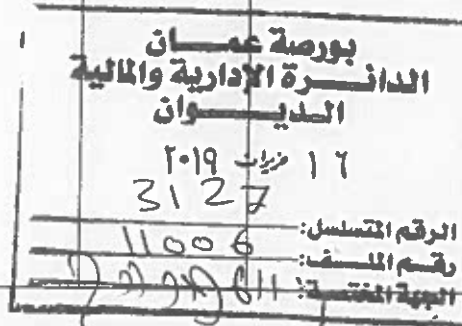 بورصة عمان
الدائرة الإدارية والمالية
الديوان
١٦ حزيران ٢٠١٩
الرقم المتسلسل: 3127
رقم الملف: 11006
الجهة المختصة: